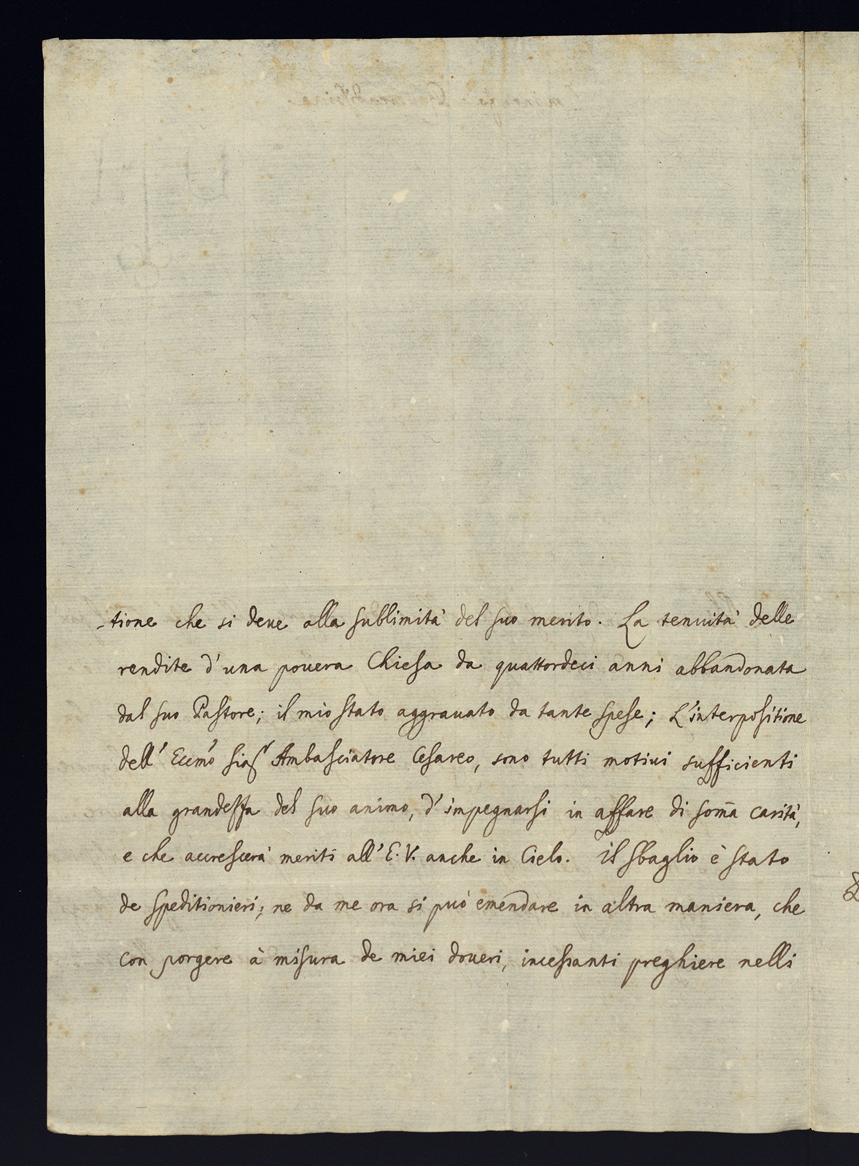 -tione che si deue alla sublimità del suo merito. La tenuità delle
rendite d'una pouera Chiesa da quattordeci anni abbandonata
dal suo Pastore; il mio stato aggrauato da tante spese; L'interpositione
dell' Eccmo͂ Sigr Ambasciatore Cesareo, sono tutti motiui sufficienti
alla grandezza del suo animo, d'impegnarsi in affare di som̃a carità,
e che accrescerà meriti all' E. V. anche in Cielo. il sbaglio è stato
de speditionieri; ne da me ora si può emendare in altra maniera, che
con porgere à misura de miei doueri, incessanti preghiere nelli